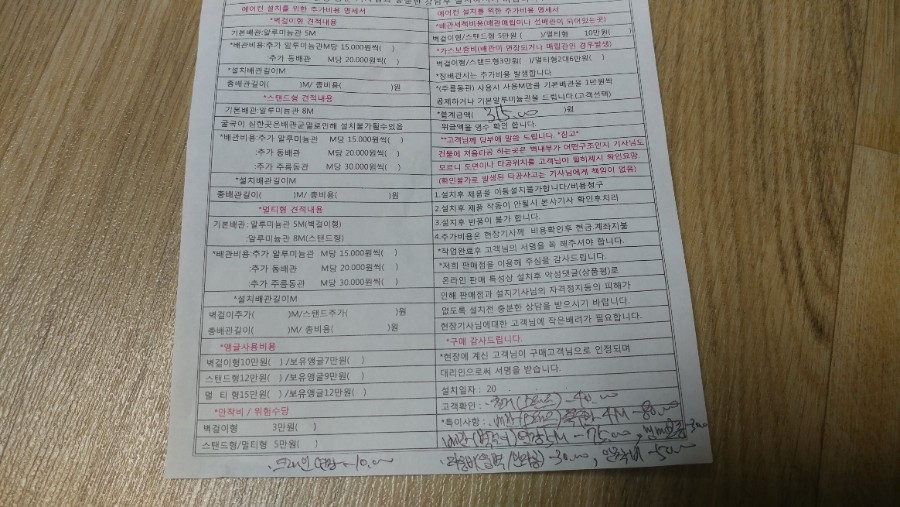 에어컨 설치를 위한 추가비용 명세서
*벽걸이형 견적내용
기본배관:알루미늄관 5M
*배관비용:추가 알루미늄관M당 15.000원씩( )
추가 동배관 M당 20.000원씩( )
*설치배관길이M
총배관길이( )M/ 총비용( )원
*스탠드형 견적내용
기본배관:알루미늄관 8M
굴곡이 심한곳은배관군열로인해 설치불가될수있음
*배관비용:추가 알루미늄관 M당 15.000원씩( )
:추가 동배관 M당 20.000원씩( )
:추가 주름동관 M당 30.000원씩( )
*설치배관길이M
총배관길이( )M/ 총비용( )원
*멀티형 견적내용
기본배관: 알루미늄관 5M(벽걸이형)
:알루미늄관 8M(스탠드형)
*배관비용:추가 알루미늄관 M당 15.000원씩( )
:추가 동배관 M당 20.000원씩( )
:추가 주름동관 M당 30.000원씩( )
*설치배관길이M
벽걸이추가( )M/스탠드추가( )원
총배관길이( )M/ 총비용( )원
*앵글사용비용
벽걸이형10만원( )/보유앵글7만원( )
스탠드형12만원( )/보유앵글9만원( )
멀 티 형15만원( )/보유앵글12만원( )
*안착비 / 위험수당
벽걸이형 3만원( )
스탠드형/멀티형 5만원( )
-10.000
에어컨 설치를 위한 추가비용 명세서
*배관세척비용(배관매립이나 선배관이 되어있는곳)
벽걸이형/스탠드형 5만원 ( )/멀티형 10만원( )
*가스보충비(배관이 연장되거나 매립관인 경우발생)
벽걸이형/스탠드형3만원( )/멀티형2대6만원( )
*장배관시는 추가비용 발생합니다
*(주름동관) 사용시 사용M만큼 기본배관을 1만원씩
공제하거나 기본알루미늄관을 드립니다(고객선택)
*총계금액( 315.000 )원
위금액을 영수 확인 합니다.
**고객님께 당부에 말씀 드립니다. *참고*
건물에 처음타공 하는곳은 벽내부가 어떤구조인지 기사님도
모르니 도면이나 타공위치를 고객님이 필히제시 확인요망
(확인불가로 발생된 타공사고는 기사님에게 책임이 없음)
1.설치후 제품을 이동설치불가합니다/비용청구
2.설치후 제품 작동이 안될시 본사기사 확인후처리
3.설치후 반품이 불가 합니다.
4.추가비용은 현장기사께 비용확인후 현금.계좌지불
*작업완료후 고객님의 서명을 꼭 해주셔야 합니다.
*저희 판매점을 이용해 주심을 감사드립니다.
온라인 판매 특성상 설치후 악성댓글(상품평)로
인해 판매점과 설치기사님의 자격정지등의 피해가
없도록 설치전 충분한 상담을 받으시기 바랍니다.
현장기사님에대한 고객님에 작은배려가 필요합니다.
*구매 감사드립니다
*현장에 계신 고객님이 구매고객님으로 인정되며
대리인으로써 서명을 받습니다.
설치일자 : 20
고객확인 : -40.000
*특이사항 : 4M -80.000
5M -75.000, -30.000
-30.000, 안착비 -50.000